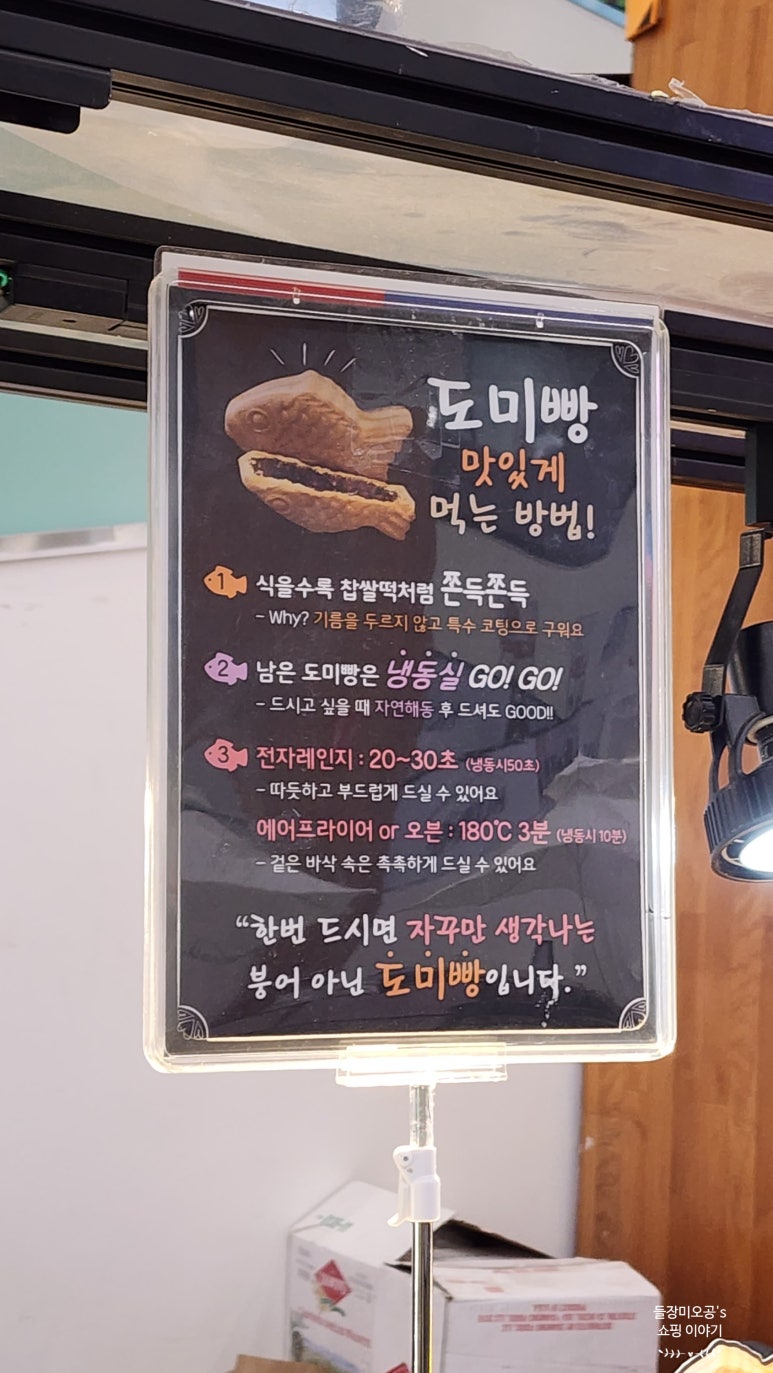 도미빵
맛있게
먹는 방법!
1 식을수록 찹쌀떡처럼 쫀득쫀득
- Why? 기름을 두르지 않고 특수 코팅으로 구워요
2 남은 도미빵은 냉동실 GO! GO!
- 드시고 싶을 때 자연해동 후 드셔도 GOOD!!
3 전자레인지 : 20~30초 (냉동시50초)
- 따듯하고 부드럽게 드실 수 있어요
에어프라이어 or 오븐 : 180℃ 3분 (냉동시 10분)
- 겉은 바삭 속은 촉촉하게 드실 수 있어요
“한번 드시면 자꾸만 생각나는
붕어 아닌 도미빵입니다.”
들장미오공's
쇼핑 이야기